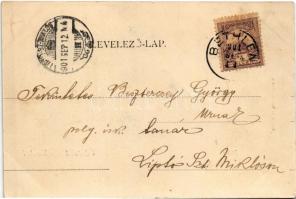 LEVELEZŐ-LAP.
BETHLEN
901 SEP 12
Tekintetes Beszterczey György
Urnak
polg. isk. tanár
Liptó Szt. Miklóson